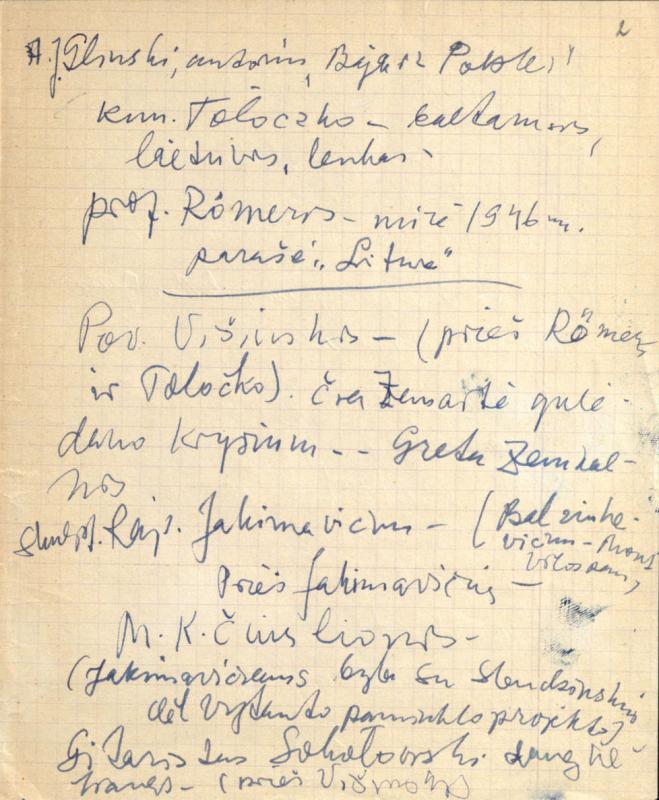 2
A. J. Glinski, autorius „Bajarz Polski"
kun. Tołoczko – baltarusis,
lietuvis, lenkas –
prof. Römeris – mirė 1946 m.
parašė „Litua"
Pov. Višinskis – (prieš Römerį
ir Toločko). čia Žemaitė gulė-
damo kryžium -- Greta Zemkal-
nis
skulpt. Raj. Jakimavičius – (Balzuke-
vičius –
Prieš Jakimavičių –
M. K. Čiurlionis –
(Jakimavičiaus byla su Slendzinskiu
dėl Vytauto paminklo projekto)
Gitaristas Sokołowski
– (prieš